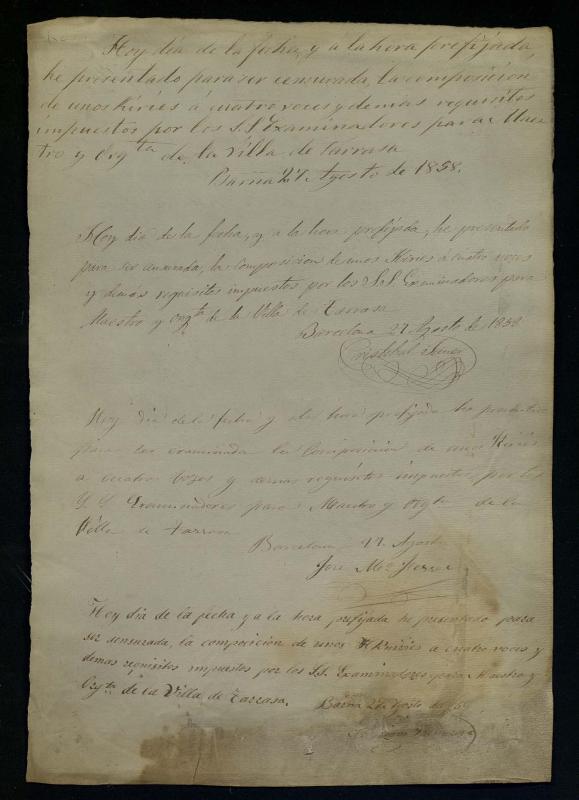 Hoy dia de la fecha, y á la hora prefijada,
he presentado para ser censurada, la composicion
de unos Kiries á cuatro voces y demas requisitos
impuestos por los S.S. Examinadores para Maes-
tro y Orgta de la Villa de Tarrasa
Barña 27 Agosto de 1858.
Hoy dia de la fecha, y a la hora prefijada, he presentado
para ser censurada, la composicion de unos Kiries a cuatro voces
y demas requisitos impuestos por los S.S. Examinadores para
Maestro y Orgta de la Villa de Tarrasa
Barcelona 27 Agosto de 1858
Cristobal
Hoy dia de la fecha y a la hora prefijada he presentado
para ser examinada la Composicion de unos Kiries
a cuatro bozes y demas requisitos impuestos por los
S S Examinadores para Maestro y Orgta de la
Villa de Tarrasa
Barcelona 27 Agosto
Jose Ma
Hoy dia de la fecha y a la hora prefijada he presentado para
ser censurada, la composicion de unos Kiries a cuatro voces y
demas requisitos impuestos por los S.S. Examinadores para Maestro y
Orgta de la Villa de Tarrasa.
Barña 27 Agosto